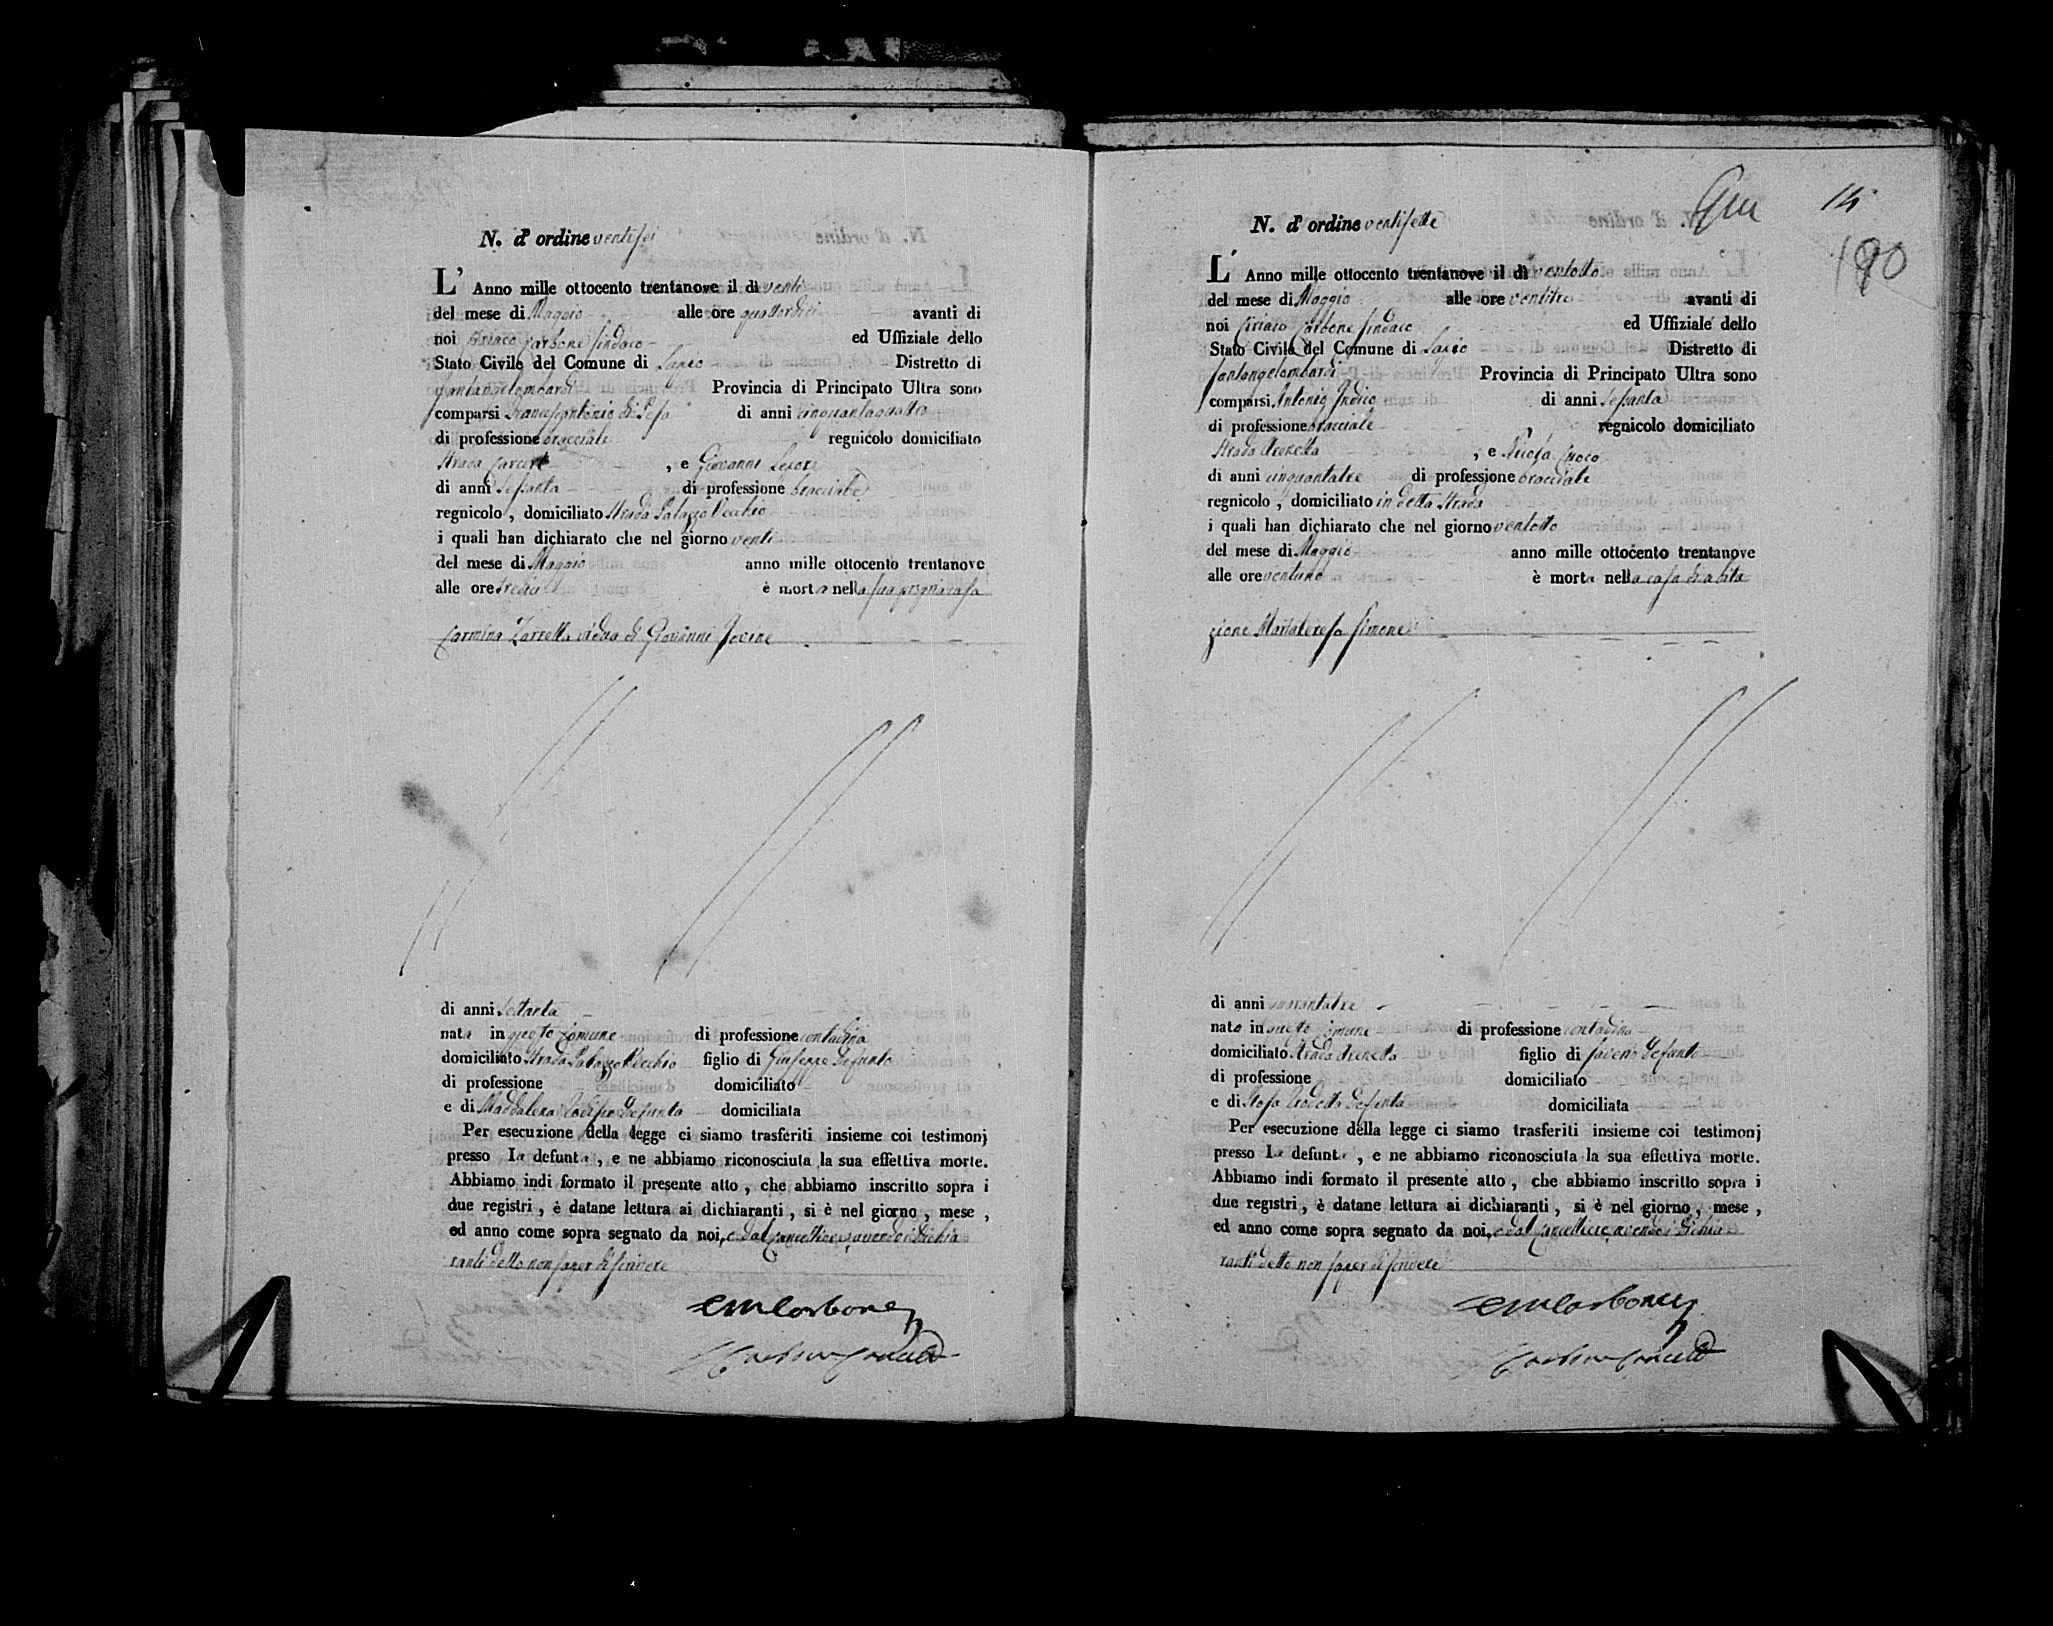 N. d'ordine ventisei
L' Anno mille ottocento trentanove il dì venti
del mese di Maggio alle ore quattordici avanti di
noi Ciriaco Carbone Sindaco ed Uffiziale dello
Stato Civile del Comune di Lapio Distretto di
Santangelombardi Provincia di Principato Ultra sono
comparsi Francescantonio di di anni cinquantaquattro
di professione bracciale regnicolo domiciliato
Strada , e Giovanni
di anni sessanta di professione bracciale
regnicolo , domiciliato Strada Palazzo Vecchio
i quali han dichiarato che nel giorno venti
del mese di Maggio anno mille ottocento trentanove
alle ore tredici è morta nella sua propria casa
Carmina Zarrella vidua di Giovanni Iovine
di anni settanta
nata in questo Comune di professione contadina
domiciliato Strada Palazzo Vecchio figlio di Giuseppe defunto
di professione domiciliato
e di Maddalena defunta domiciliata
Per esecuzione della legge ci siamo trasferiti insieme coi testimonj
presso la defunta , e ne abbiamo riconosciuta la sua effettiva morte.
Abbiamo indi formato il presente atto , che abbiamo inscritto sopra i
due registri , è datane lettura ai dichiaranti , si è nel giorno , mese ,
ed anno come sopra segnato da noi, e dal Cancelliere, avendo i dichia
ranti detto non saper di scrivere
CmCarbone
Carbone Cancell
Qm 14
190
N. d'ordine ventisette
L' Anno mille ottocento trentanove il dì ventotto
del mese di Maggio alle ore ventitre avanti di
noi Ciriaco Carbone Sindaco ed Uffiziale dello
Stato Civile del Comune di Lapio Distretto di
Santangelombardi Provincia di Principato Ultra sono
comparsi Antonio Indico di anni sessanta
di professione bracciale regnicolo domiciliato
Strada , e Nicola Cuoco
di anni cinquantatre di professione bracciale
regnicolo , domiciliato in detta Strada
i quali han dichiarato che nel giorno ventotto
del mese di Maggio anno mille ottocento trentanove
alle ore ventuno è morta nella casa di abita
zione Mariateresa Simone
di anni quarantatre
nata in questo Comune di professione contadina
domiciliato Strada figlio di Saverio defunto
di professione domiciliato
e di Rosa defunta domiciliata
Per esecuzione della legge ci siamo trasferiti insieme coi testimonj
presso la defunta , e ne abbiamo riconosciuta la sua effettiva morte.
Abbiamo indi formato il presente atto , che abbiamo inscritto sopra i
due registri , è datane lettura ai dichiaranti , si è nel giorno , mese ,
ed anno come sopra segnato da noi, e dal Cancelliere, avendo i dichia
ranti detto non saper di scrivere
CmCarbone
Carbone Cancell